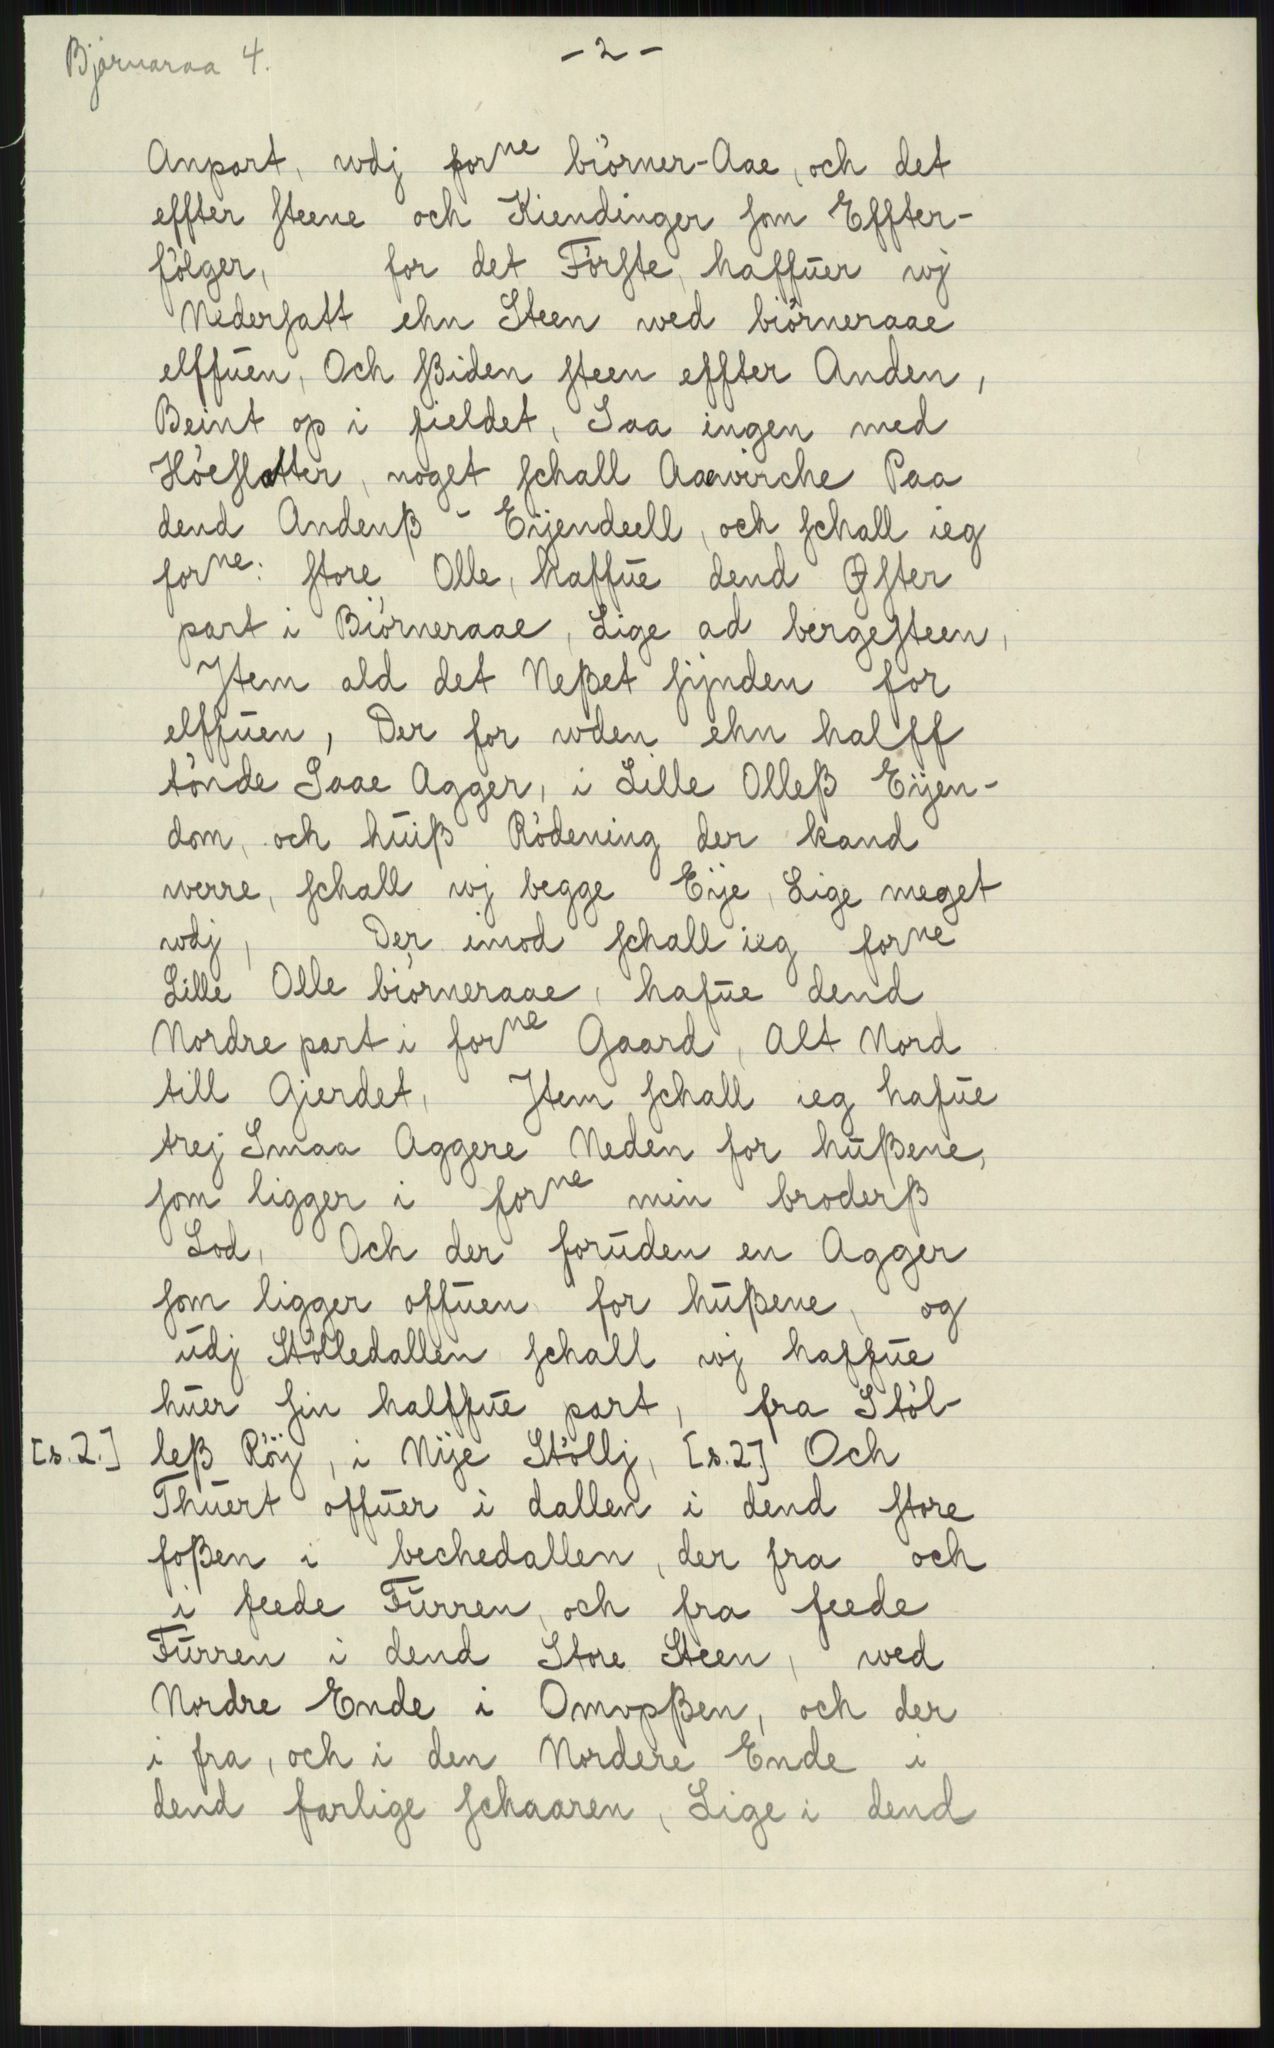 Bjørnaraa 4.
- 2 -
Anpart, wdj forne biörner-Aae, och det
effter steene och Kiendinger som Effter-
fölger, for det Förste, haffuer wj
Nedersatt ehn Steen wed biörneraae
elffuen, Och ßiden steen effter Anden,
Beint op i fieldet, Saa ingen med
Höeslatter, noget schall Aawirche Paa
dend Andenß - Eijendeell, och schall ieg
forne: store Olle, haffue dend Øster
part i Biörneraae, Lige ad bergesteen,
Jtem ald det Neßet sijnden for
elffuen, Der for wden ehn halff
tönde Saae Agger, i Lille Olleß Eijen-
dom, och huiß Rödening der kand
werre, schall wj begge Eije, Lige meget
wdj, Der imod schall ieg forne
Lille Olle biörneraae, hafue dend
Nordre part i forne Gaard, Alt Nord
till Gierdet, Jtem schall ieg hafue
trej Smaa Aggere Neden for hußene,
som ligger i forne min broderß
Lod, Och der foruden en Agger
som ligger offuen for hußene, og
udj Stölledallen schall wj haffue
huer sin halffue part, fra Stöl-
[s. 2.] leß Röij, i Nije Stöllj, [s. 2] Och
Thuert offuer i dallen i dend store
foßen i bechedallen, der fra och
i feede Furren, och fra feede
Furren i dend Store Steen, wed
Nordre Ende i Omvpßen, och der
i fra, och i den Nordere Ende i
dend farlige schaaren, Lige i dend